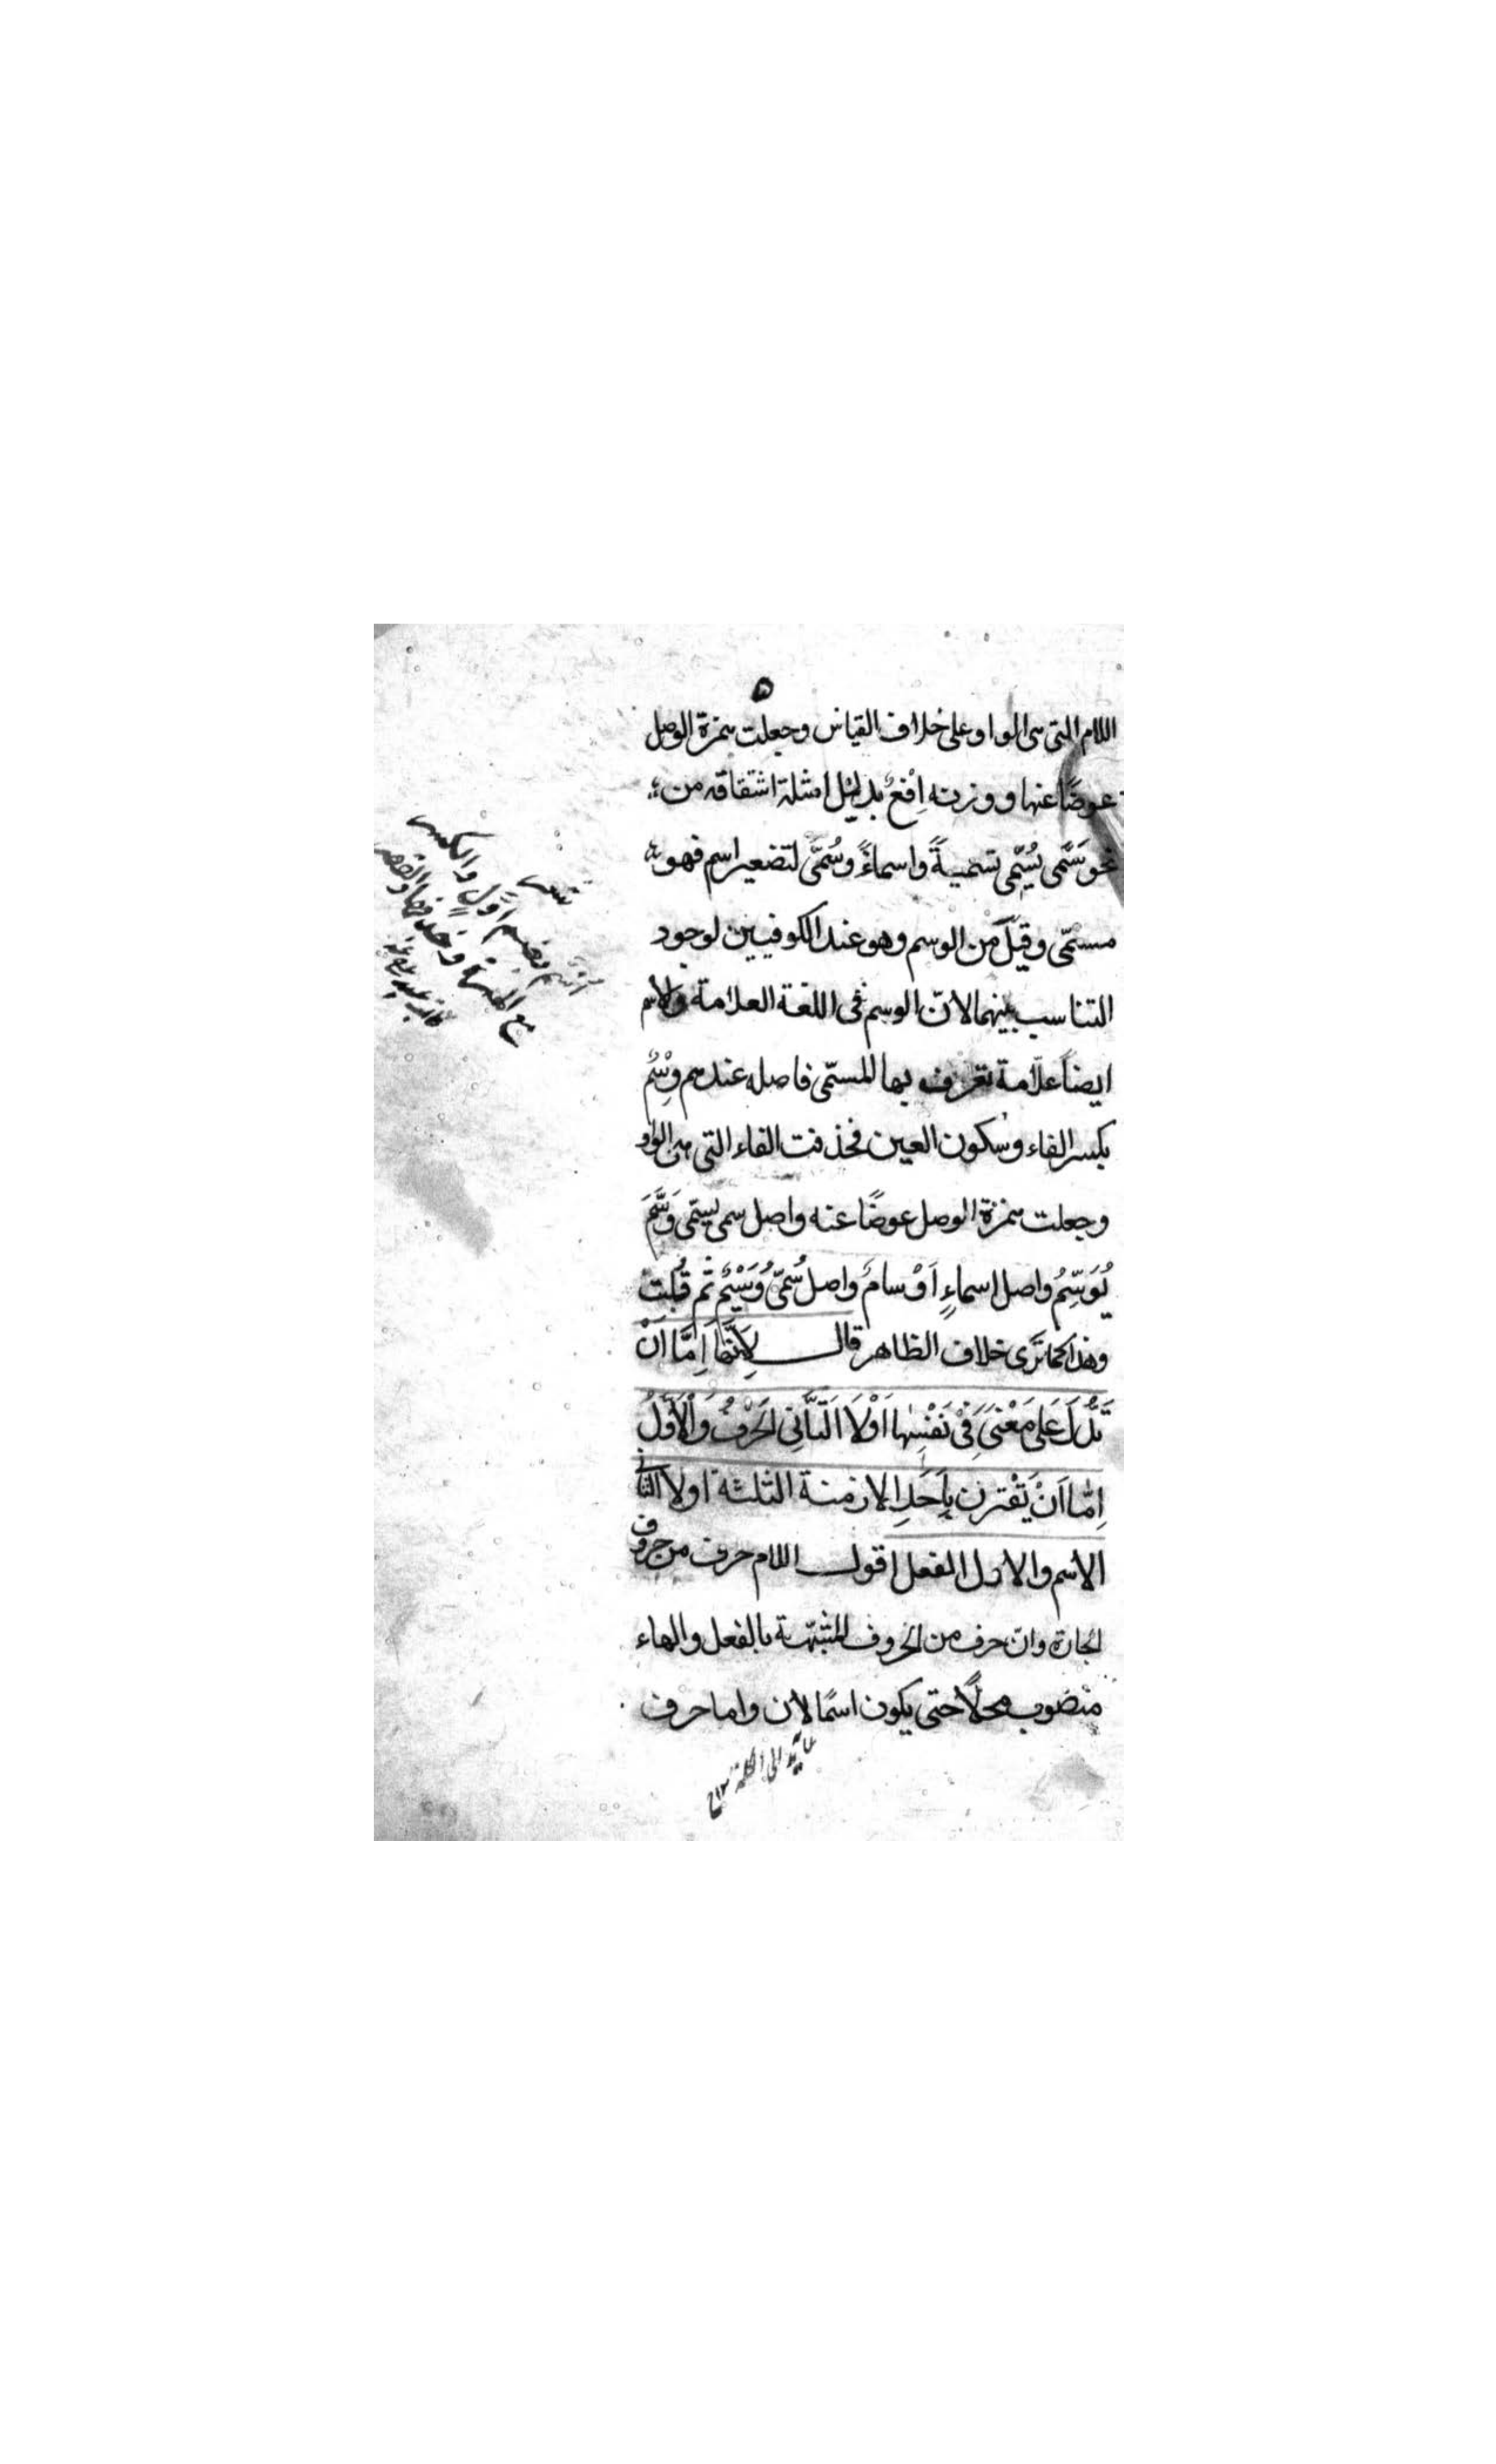 ٥
اللام التى هى الواو على خلاف القياس وجعلت همزة الوصل
عوضًا عنها ووزنه اِفْعٌ بدليل امثلة اشتقاقه من
نحو سَمّٰى يُسَمّى تسميةً واسماءً وسُمَىٌّ لتصغير اسم فهو
مسمّى وقيل من الوسم وهو عند الكوفيين لوجود
التناسب بينهما لانّ الوسم فى اللغة العلامة والاسم
ايضاً علّامة تعرف بها المسمّى فاصله عندهم وِسْمٌ
بكسر الفاء وسكون العين فحذفت الفاء التى هى الواو
وجعلت همزة الوصل عوضًا عنه واصل سمى يسمّى وَسَّمَ
يُوَسِّمُ واصل اسماءٍ اَوْسامٌ واصل سُمَىٌّ وُسَيْمٌ ثم قُلبت
وهذا كما تَرٰى خلاف الظاهر قال لِاَنَّهَا اِمَّا اَنْ
تَدُلَّ عَلى مَعْنىً فِىْ نَفْسِهَا اَوْلَا اَلثَّانِى الْحَرْفُ وَالْاَوَّلُ
اِمّا اَنْ يَقْترن بِاَحَدِ الازمنة الثلثة اولا الثانى
الاسم والاول الفعل اقول اللام حرف من حروف
الجارة وانّ حرف من الحروف المشبّهة بالفعل والهاء
منصوب محلًا حتى يكون اسمًا لان واما حرف
والكسر
بضم اول
مع الهمزة وحذفها والقصر